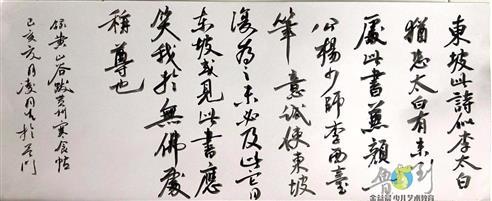 東坡此詩似李太白
猶恐太白有未到
處此書兼顏魯
公楊少師李西臺
筆意試使東坡
復為之未必及此它日
東坡或見此書應
笑我於無佛處
稱尊也
錄黃山谷跋黃州寒食帖
己亥六月
少儿艺术教育